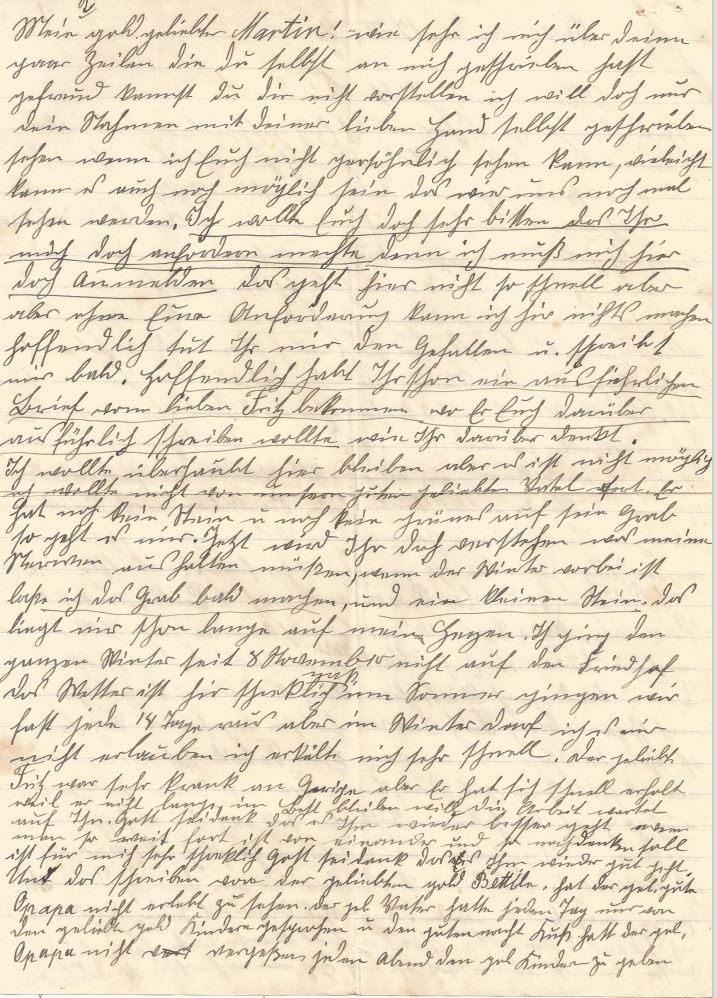 2
Mein gold. geliebter Martin! wie sehr ich mich über deine
paar Zeilen die du selbst an mich geschrieben hast
gefreud kannst du dir nicht vorstellen ich will doch nur
dein Nahmen mit deiner lieben Hand selbst geschrieben
sehen wenn ich Euch nicht persöhnlich sehen kann, vieleicht
kann es auch noch möglich sein das wir uns noch mal
sehen werden. Ich wollte Euch doch sehr bitten das Ihr
mich doch anfordern mechte denn ich muß mich hier
doch Anmelden das geht hier nicht so schnell aber
aber ohne Eure Anforderung kann ich hir nichts machen
hoffendlich tut Ihr mir den Gefallen u. schreibt
mir bald. Hoffendlich habt Ihr schon ein ausführlichen
Brief vom lieben Fritz bekommen wo Er Euch darüber
ausführlich schreiben wollte wie Ihr darüber denkt.
Ich wollte überhaubt hier bleiben aber es ist nicht möglig
ich wollte nicht von unsern guten geliebten Vatel fort. Er
hat noch kein Stein u noch kein grünes auf sein Grab
so geht es mir. Jetzt wird Ihr doch verstehen was meine
Nerwen aushalten müßen, wenn der Winter vorbei ist
laße ich das Grab bald machen, und ein kleinen Stein. das
liegt mir schon lange auf meinen Herzen. Ich ging den
ganzen Winter seit 8 November nicht auf den Friedhof
das Wetter ist hir schreklich naß im Sommer gingen wir
fast jede 14 Tage raus aber im Winter darf ich es mir
nicht erlauben ich erkälte mich sehr schnell. Der geliebte
Fritz war sehr krank an Gripe aber Er hat sich schnell erholt
weil er nicht lange im Bett bleiben will die Arbeit wartet
auf Ihn. Gott seidank das es Ihm wieder besser geht wenn
man so weit fort ist von einander und so nachdenken soll
ist für mich sehr schreklich Gott seidank das es Ihm wieder gut geht.
Und das schreiben von der geliebten gold Bettle. hat der gel. gute
Opapa nicht erlebt zu sehen. der gel Vater hatte jeden Tag nur von
den geliebte gold Kindern gesprochen u den guten nacht Kuß hatt der gel.
Opapa nicht vergeßen jeden Abend den gel Kinder zu geben